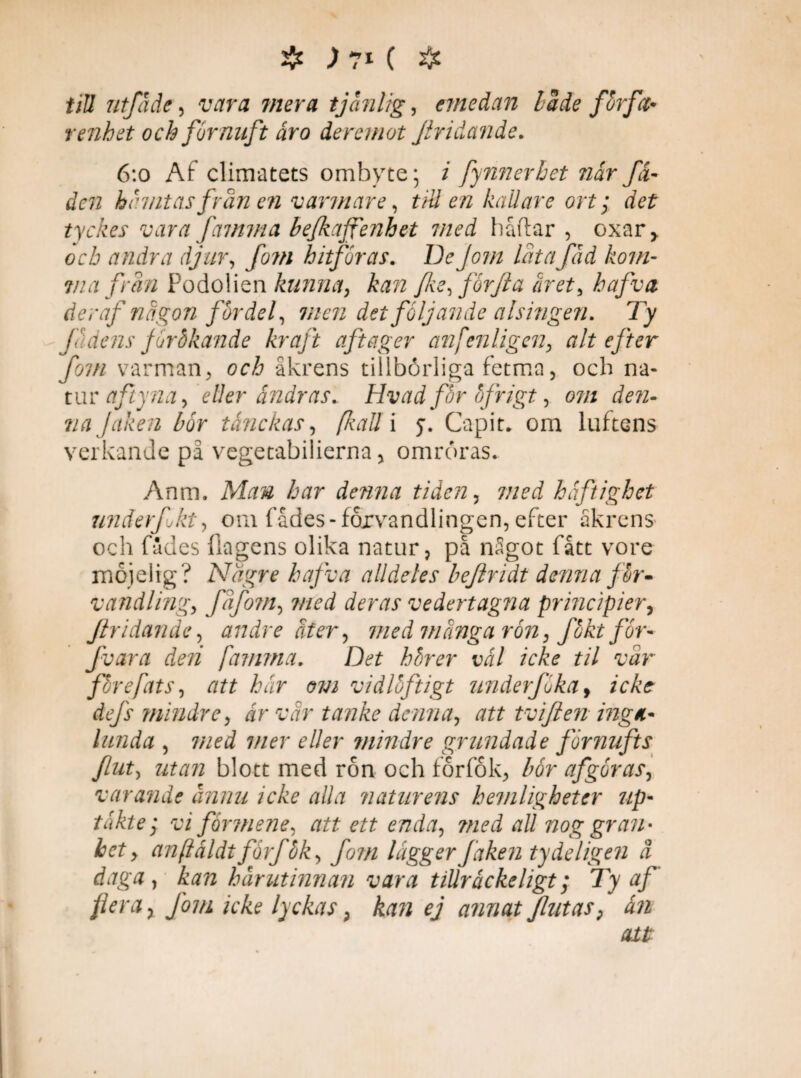 ☼ ) 71 ( ☼
till utſäde, vara mera tjänlig, emedan både förfa-
renhet och förnuft äro deremot ſtridande.
6:o Af climatets ombyte; i ſynnerhet när ſä-
den hämtas från en varmare, till en kallare ort; det
tyckes vara ſamma beſkaffenhet med häſtar, oxar,
och andra djur, ſom hitföras. De ſom låta ſäd kom-
ma från Podolien kunna, kan ſke, förſta året, hafva
deraf någon fördel, men det följande alsingen. Ty
ſädens förökande kraft aftager anſenligen, alt efter
ſom varman, och åkrens tillbörliga fetma, och na-
tur aftyna, eller ändras. Hvad för öfrigt, om den-
na ſaken bör tänckas, ſkall i 5. Capit. om luftens
verkande på vegetabilierna, omröras.
Anm. Man har denna tiden, med häftighet
underſökt, om ſädes-förvandlingen, efter åkrens
och ſädes ſlagens olika natur, på något ſätt vore
möjelig? Någre hafva alldeles beſtridt denna för-
vandling, ſåſom, med deras vedertagna principier,
ſtridande, andre åter, med många rön, ſökt för-
ſvara den ſamma. Det hörer väl icke til vår
föreſats, att här om vidlöftigt underſöka, icke
deſs mindre, är vår tanke denna, att tviſten inga-
lunda, med mer eller mindre grundade förnufts
ſlut, utan blott med rön och förſök, bör afgöras,
varande ännu icke alla naturens hemligheter up-
täkte; vi förmene, att ett enda, med all noggran-
het, anſtäldt förſök, ſom lägger ſaken tydeligen å
daga, kan härutinnan vara tillräckeligt; Ty af
flera, ſom icke lyckas, kan ej annat ſlutas, än
att